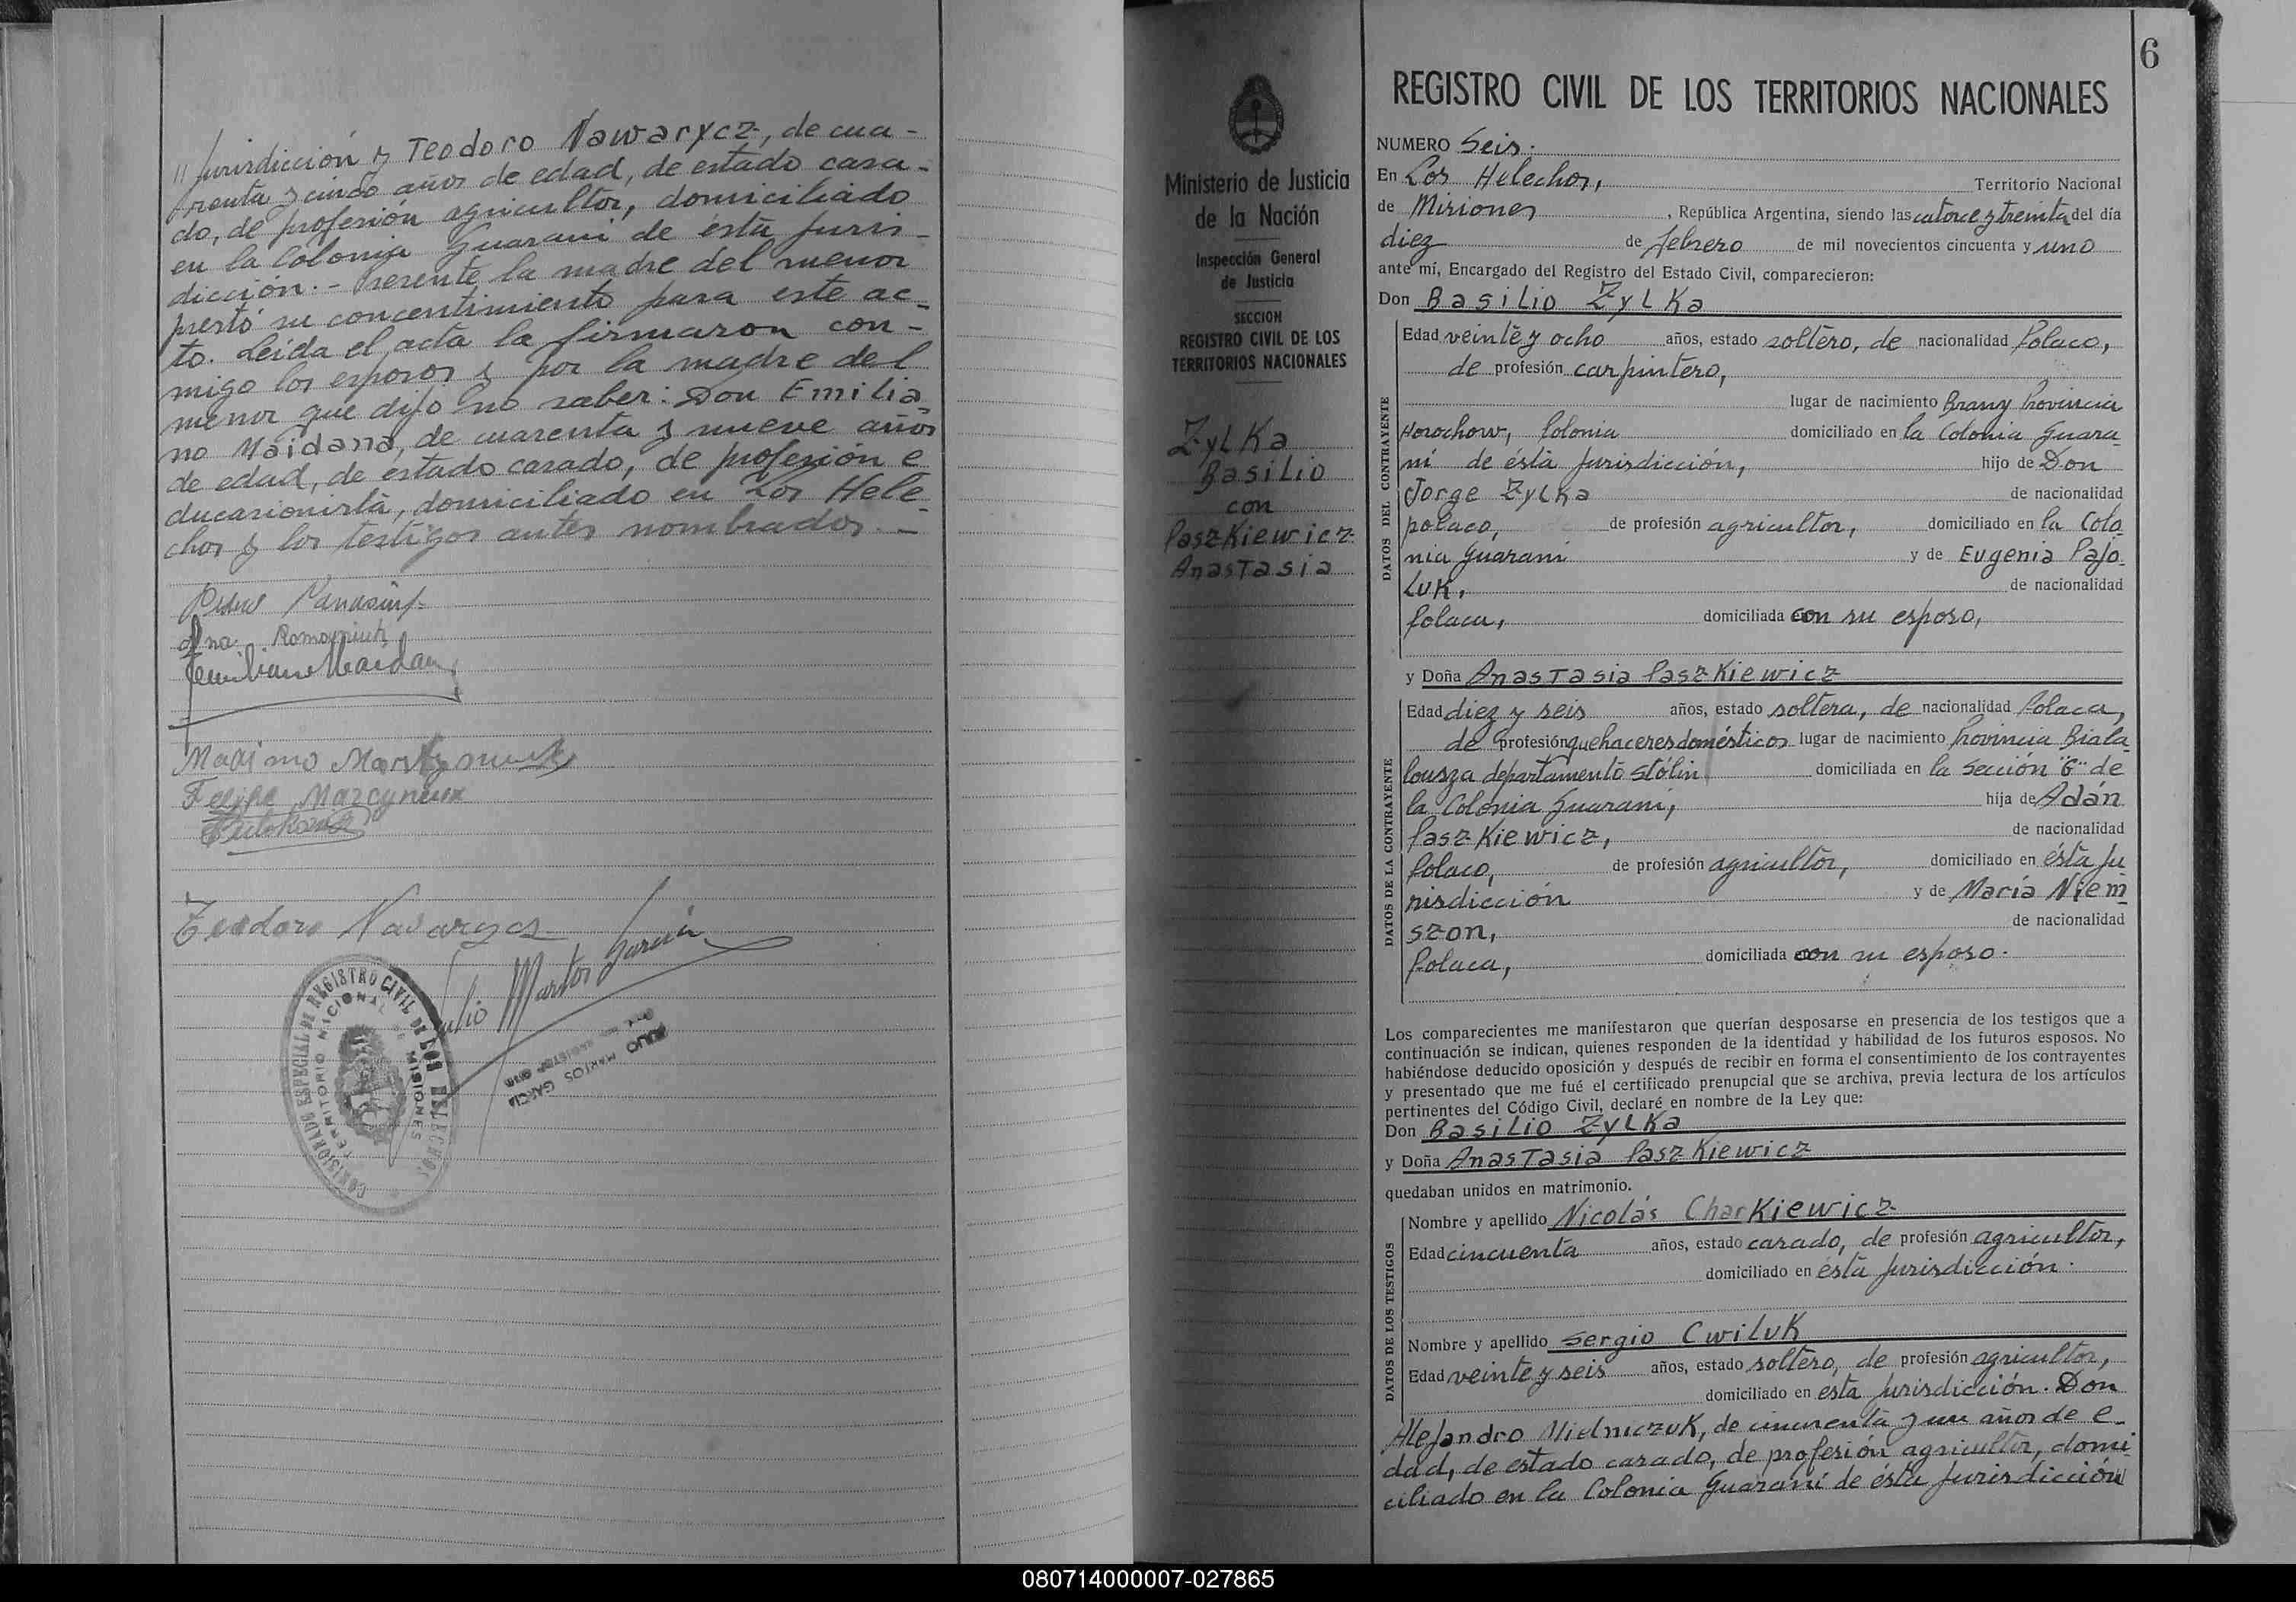 // jurisdicción y Teodoro Nawarycz, de cua-
renta y cinco años de edad, de estado casa-
do, de profesión agricultor, domiciliado
en la Colonia Guaraní de ésta juris-
dicción.- Presente la madre del menor
prestó su concentimiento para este ac-
to. Leída el acta la firmaron con-
migo los esposos y por la madre del
menor que dijo no saber: Don Emilia-
no Maidana, de cuarenta y nueve años
de edad, de estado casado, de profesión e-
ducasionista, domiciliado en Los Hele-
chos y los testigos antes nombrados.-
Ana Romaniuk
Emiliano Maidana
Maximo
Felipe Marcyniuk
Teodoro Nawarycz
Julio Martos García
COMISIONADO ESPECIAL DE REGISTRO CIVIL DE LOS HELECHOS
TERRITORIO NACIONAL DE MISIONES
JULIO MARTOS GARCIA
6
Ministerio de Justicia
de la Nación
Inspección General
de Justicia
SECCION
REGISTRO CIVIL DE LOS
TERRITORIOS NACIONALES
Zylka
Basilio
con
Paszkiewicz
Anastasia
REGISTRO CIVIL DE LOS TERRITORIOS NACIONALES
NUMERO Seis.
En Los Helechos, Territorio Nacional
de Misiones, República Argentina, siendo las catorce y treinta del día
diez de febrero de mil novecientos cincuenta y uno
ante mí, Encargado del Registro del Estado Civil, comparecieron:
Don Basilio Zylka
DATOS DEL CONTRAYENTE
Edad veinte y ocho años, estado soltero, de nacionalidad Polaco,
de profesión carpintero,
lugar de nacimiento Brany Provincia
Horochow, Polonia domiciliado en la Colonia Guara-
ní de ésta jurisdicción, hijo de Don
Jorge Zylka de nacionalidad
polaco, de profesión agricultor, domiciliado en la Colo-
nia Guaraní y de Eugenia Pajo-
luk, de nacionalidad
Polaca, domiciliada con su esposo,
y Doña Anastasia Paszkiewicz
DATOS DE LA CONTRAYENTE
Edad diez y seis años, estado soltera, de nacionalidad Polaca,
de profesión quehaceres domésticos lugar de nacimiento Provincia Biala-
lousza departamento Stólin domiciliada en la Sección "6" de
la Colonia Guaraní, hija de Adán
Paszkiewicz, de nacionalidad
Polaco, de profesión agricultor, domiciliado en ésta ju
risdicción y de María Niem
szon, de nacionalidad
Polaca, domiciliada con su esposo.
Los comparecientes me manifestaron que querían desposarse en presencia de los testigos que a
continuación se indican, quienes responden de la identidad y habilidad de los futuros esposos. No
habiéndose deducido oposición y después de recibir en forma el consentimiento de los contrayentes
y presentado que me fué el certificado prenupcial que se archiva, previa lectura de los artículos
pertinentes del Código Civil, declaré en nombre de la Ley que:
Don Basilio Zylka
y Doña Anastasia Paszkiewicz
quedaban unidos en matrimonio.
DATOS DE LOS TESTIGOS
Nombre y apellido Nicolás Charkiewicz
Edad cincuenta años, estado casado, de profesión agricultor,
domiciliado en ésta jurisdicción.
Nombre y apellido Sergio Cwiluk
Edad veinte y seis años, estado soltero, de profesión agricultor,
domiciliado en esta jurisdicción. Don
Alejandro Mielniczuk, de cincuenta y un años de e-
dad, de estado casado, de profesión agricultor, domi
ciliado en la Colonia Guaraní de ésta jurisdicción
080714000007-027865